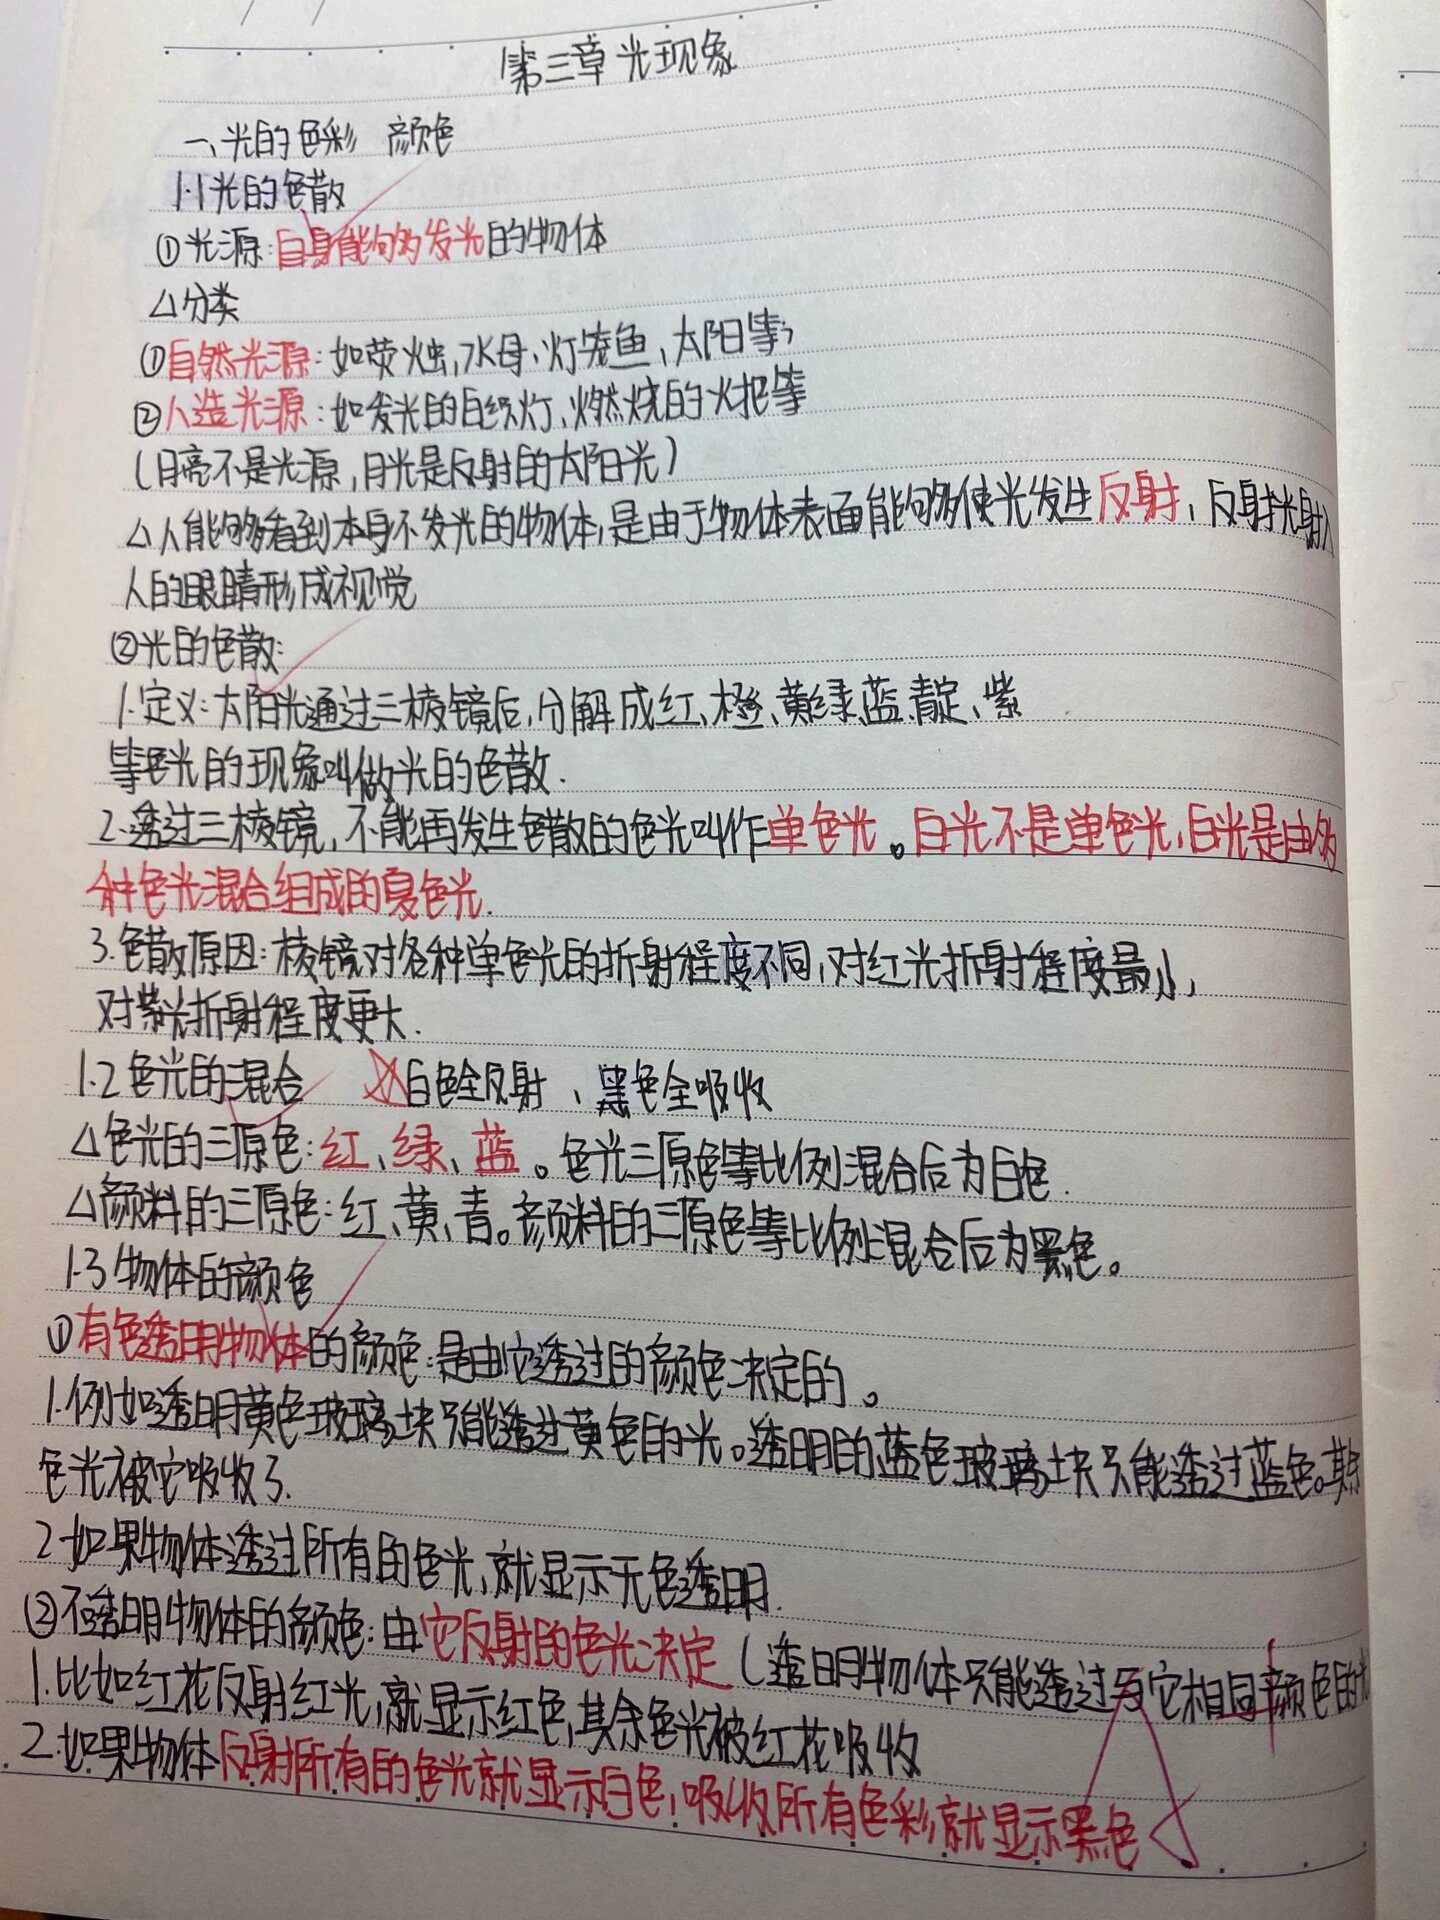 第三章 光现象
一、光的色彩 颜色
1.1光的色散
①光源:自身能够发光的物体
△分类
①自然光源:如荧烛,水母、灯笼鱼,太阳等;
②人造光源:如发光的白织灯、燃烧的火把等
(月亮不是光源,月光是反射的太阳光)
△人能够看到本身不发光的物体,是由于物体表面能够使光发生反射,反射光射入
人的眼睛形成视觉
②光的色散:
1.定义:太阳光通过三棱镜后,分解成红、橙、黄绿、蓝、靛、紫
等色光的现象叫做光的色散.
2.透过三棱镜,不能再发生色散的色光叫作单色光。白光不是单色光,白光是由多
种色光混合组成的复色光.
3.色散原因:棱镜对各种单色光的折射程度不同,对红光折射程度最小,
对紫光折射程度更大.
1.2色光的混合 白色全反射、黑色全吸收
△色光的三原色:红、绿、蓝。色光三原色等比例混合后为白色.
△颜料的三原色:红、黄、青。颜料的三原色等比例混合后为黑色。
1.3物体的颜色
①有色透明物体的颜色:是由它透过的颜色决定的。
1.例如透明黄色玻璃块只能透过黄色的光。透明的蓝色玻璃块只能透过蓝色。其余
色光被它吸收了.
2.如果物体透过所有的色光,就显示无色透明.
②不透明物体的颜色:由它反射的色光决定(透明物体只能透过与它相同颜色的光
1.比如红花反射红光,就显示红色,其余色光被红花吸收
2.如果物体反射所有的色光就显示白色,吸收所有色彩就显示黑色